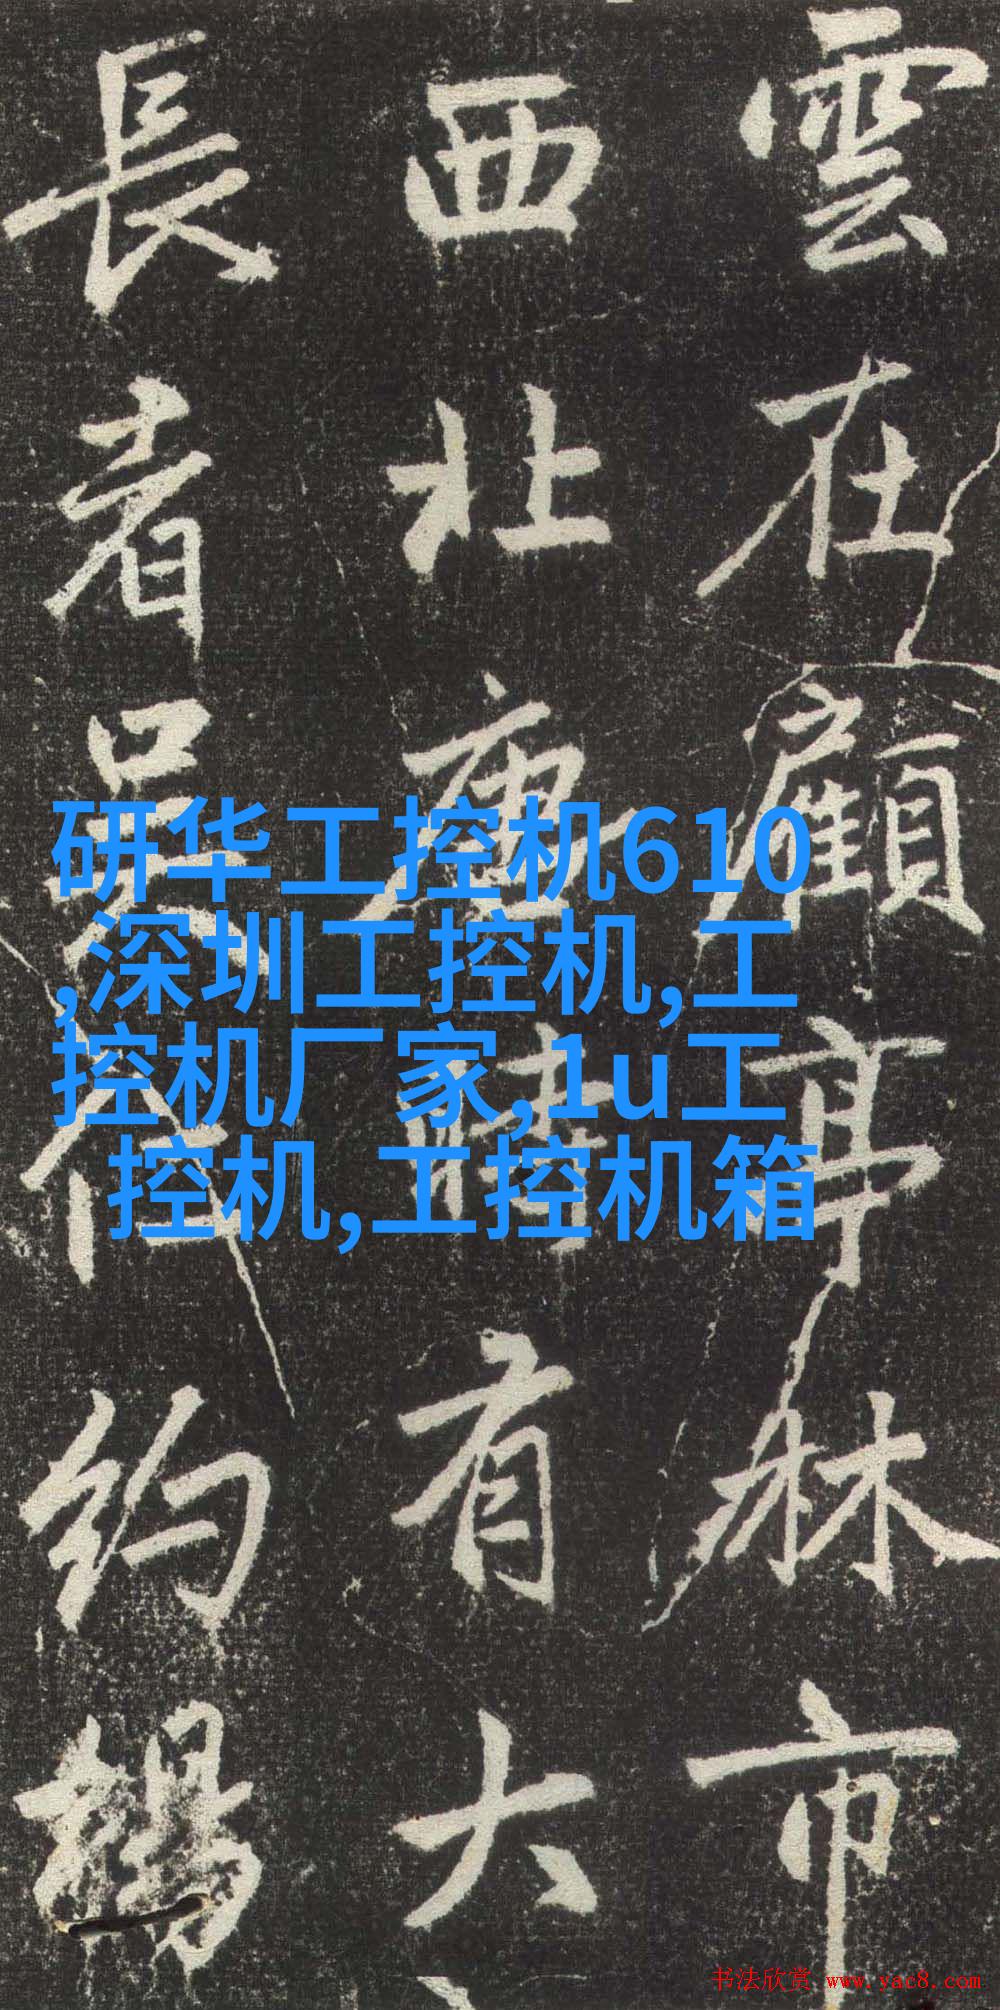 雲在顧亭林市
西北有大
長者吳約
研华工控机610
,深圳工控机,工
控机厂家,1u工
控机,工控机箱
书法欣赏 www.yac8.com